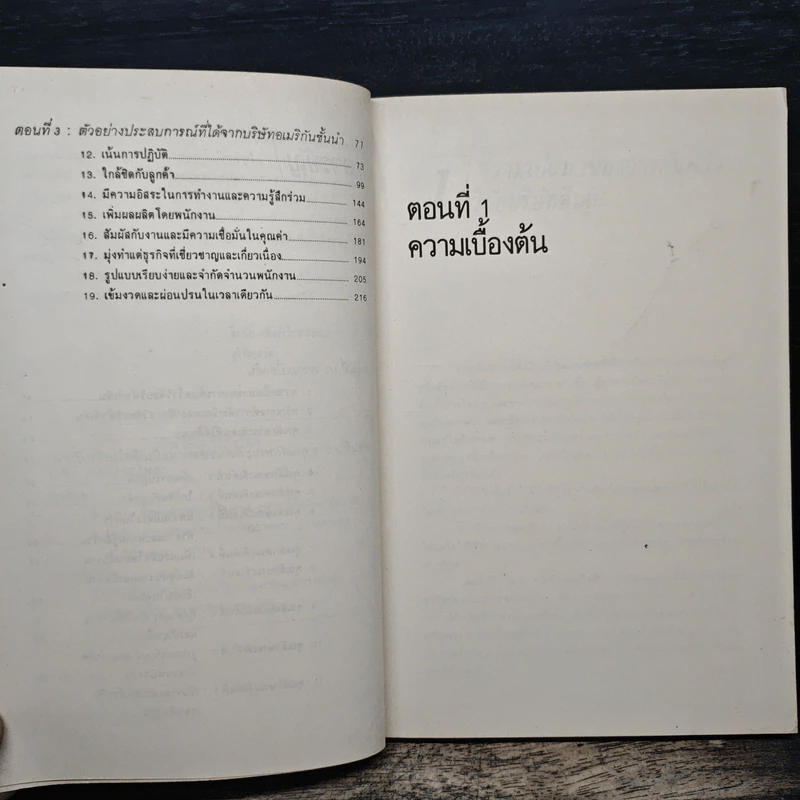 ตอนที่ 3 : ตัวอย่างประสบการณ์ที่ได้จากบริษัทอเมริกันชั้นนำ 71
12. เน้นการปฏิบัติ 73
13. ใกล้ชิดกับลูกค้า 99
14. มีความอิสระในการทำงานและความรู้สึกร่วม 144
15. เพิ่มผลผลิตโดยพนักงาน 164
16. สัมผัสกับงานและมีความเชื่อมั่นในคุณค่า 181
17. มุ่งทำแต่ธุรกิจที่เชี่ยวชาญและเกี่ยวเนื่อง 194
18. รูปแบบเรียบง่ายและจำกัดจำนวนพนักงาน 205
19. เข้มงวดและผ่อนปรนในเวลาเดียวกัน 216
ตอนที่ 1
ความเบื้องต้น